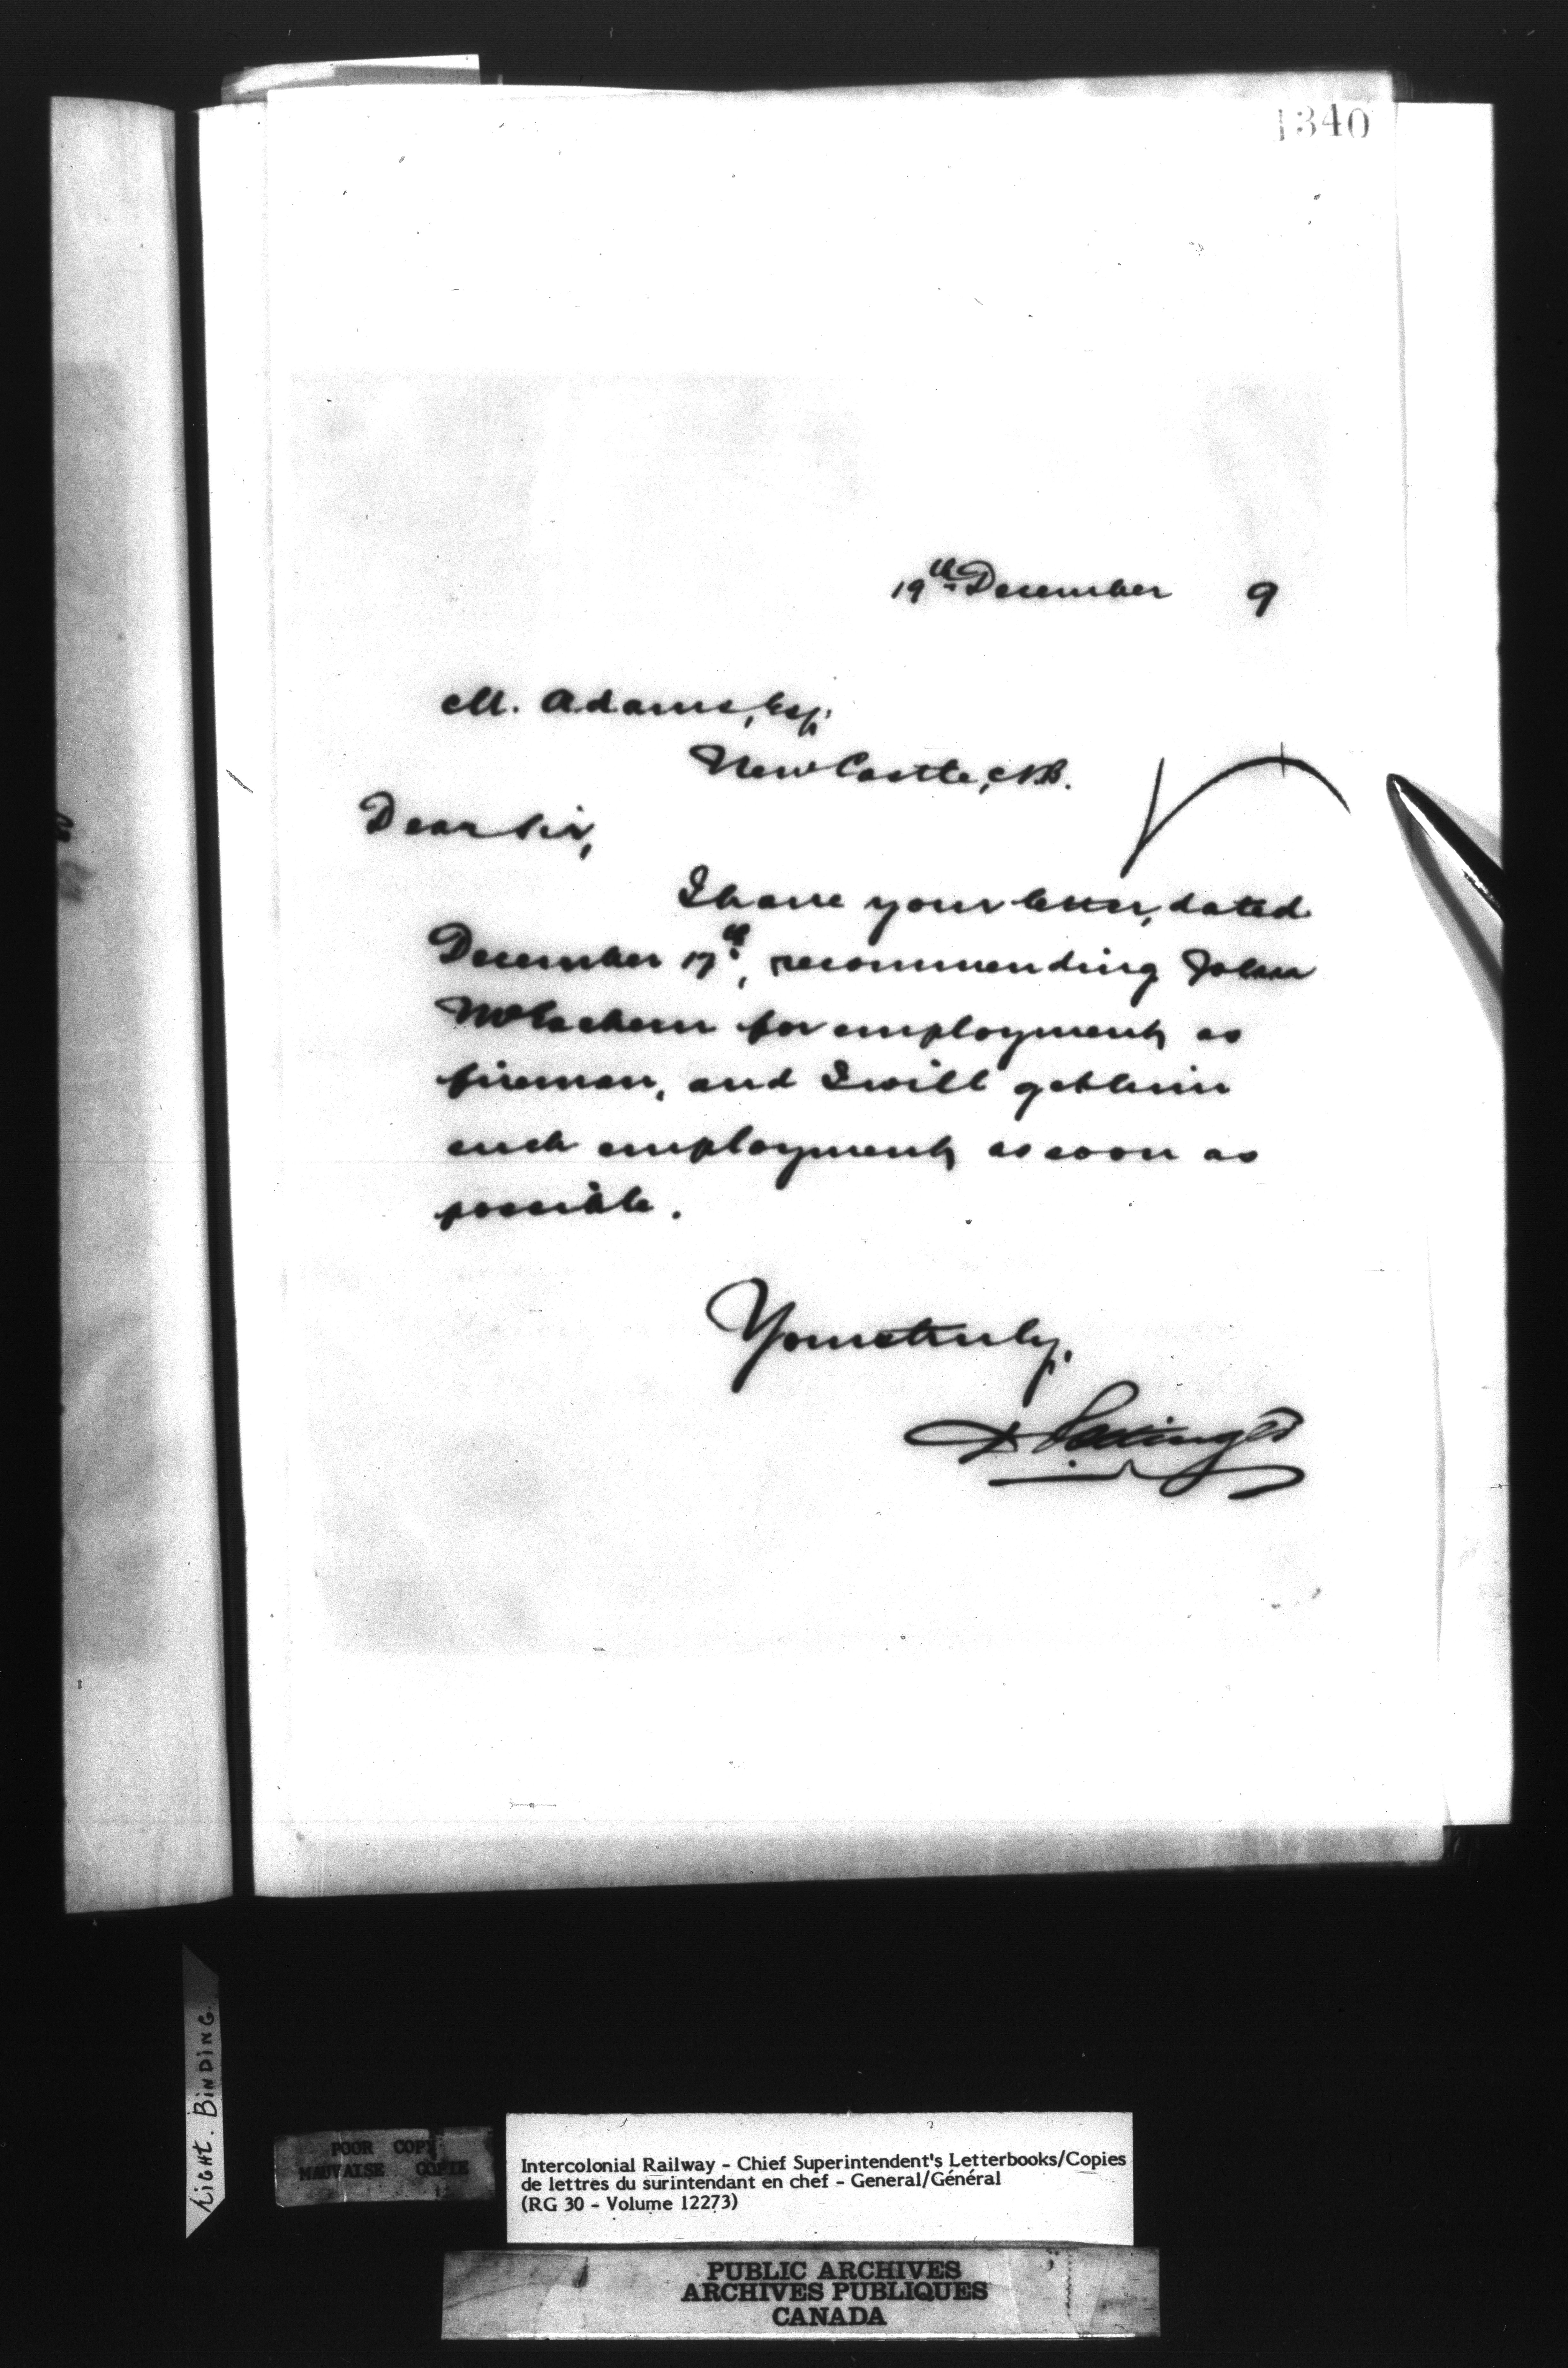 1340
19th December 9
M. Adams, Esq.
NewCastle, N.B.
Dear Sir,
I have your letter, dated
December 17th, recommending John
McEachern for employment as
fireman, and I will get him
such employment as soon as
possible.
Yours truly,
D Pottinger
TIGHT. BINDING.
POOR COPY
MAUVAISE COPIE
Intercolonial Railway - Chief Superintendent's Letterbooks/Copies
de lettres du surintendant en chef - General/Général
(RG 30 - Volume 12273)
PUBLIC ARCHIVES
ARCHIVES PUBLIQUES
CANADA